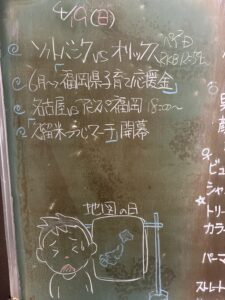 4/19(日)
ソフトバンク VS オリックス ペイペイD
RKB 12:54〜
6月〜「福岡県子育て応援金」
名古屋 VS アビスパ福岡 18:00〜
久留米 開幕
地図の日
ビュ
シャン
☆トリー
カラ
パーマ
ストレート